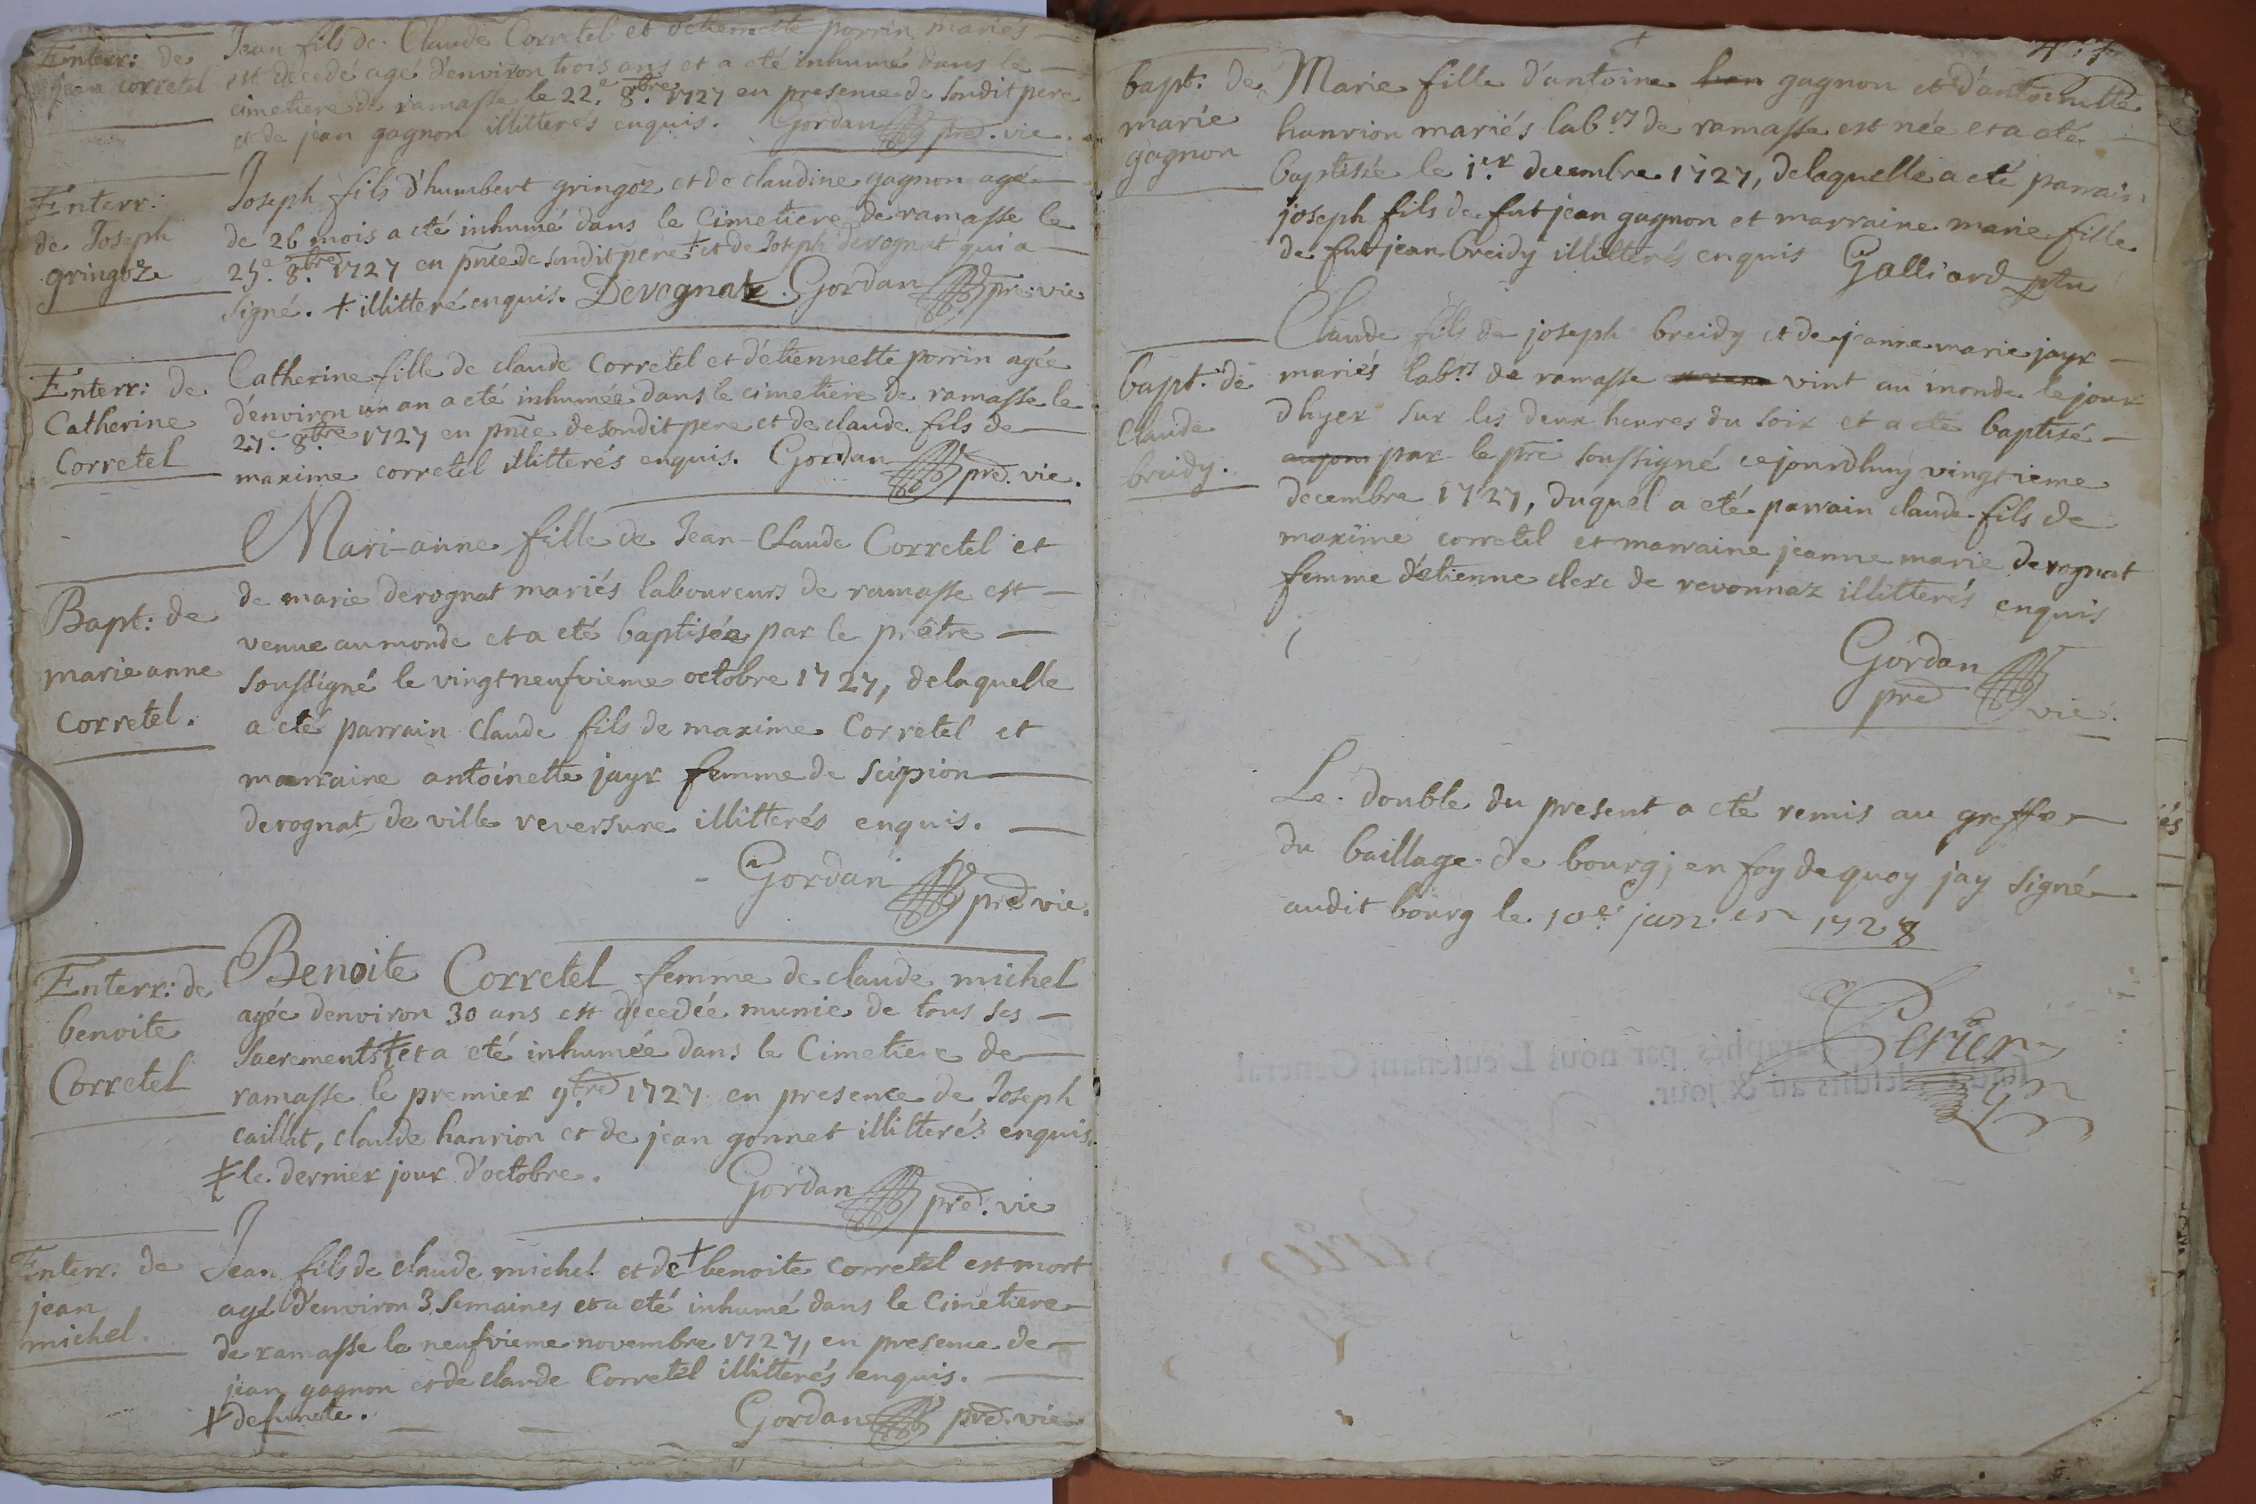 Enterr: de
jean corretel
Jean fils de Claude Corretel et d'etiennette porrin mariés
est decedé agé d'environ trois ans et a eté inhumé dans le
cimetiere de ramasse le 22.e 8.bre 1727 en presence de sondit pere
et de jean gagnon illitterés enquis. Gordan pre. vic.
Enterr:
de Joseph
gringoz
Joseph fils d'humbert gringoz et de claudine gagnon agé
de 26 mois a eté inhumé dans le Cimetiere de ramasse le
25.e 8.bre 1727 en pnce de sondit pere + et de Joseph derognat qui a
signé. + illitteré enquis. Derognat. Gordan pre. vic
Enterr: de
Catherine
Corretel
Catherine fille de claude Corretel et d'etiennette porrin agée
d'environ un an a eté inhumée dans le cimetiere de ramasse le
27.e 8.bre 1727 en pnce de sondit pere et de claude fils de
maxime corretel illitterés enquis. Gordan pre. vic.
Bapt: de
marie anne
corretel.
Mari-anne fille de Jean-Claude Corretel et
de marie derognat mariés laboureurs de ramasse est
venue au monde et a eté baptisée par le prêtre
soussigné le vingtneufvieme octobre 1727, de laquelle
a eté parrain Claude fils de maxime Corretel et
marraine antoinette jayr femme de scipion
derognat de ville reversure illitterés enquis.
Gordan pre. vic.
Enterr: de
benoite
Corretel
Benoite Corretel femme de claude michel
agée denviron 30 ans est decedée munie de tous ses
sacrements + et a eté inhumée dans le Cimetiere de
ramasse le premier 9.bre 1727 en presence de Joseph
caillat, claude hanrion et de jean gonnet illitterés enquis.
+ le dernier jour d'octobre.
Gordan pre. vic
Enterr: de
jean
michel.
Jean fils de claude michel et de + benoite corretel est mort
agé d'environ 3 semaines et a eté inhumé dans le Cimetiere
de ramasse le neufvieme novembre 1727, en presence de
jean gagnon et de claude Corretel illitterés enquis.
+ defuncte.
Gordan pre. vic
bapt: de
marie
gagnon
Marie fille d'antoine gagnon et d'antoinette
hanrion mariés lab.rs de ramasse est née et a eté
baptisée le 1.er decembre 1727, de laquelle a eté parrain
joseph fils de fut jean gagnon et marraine marie fille
de fut jean breidy illitterés enquis Galliard ptre
bapt. de
Claude
breidy.
Claude fils de joseph breidy et de jeanne marie jayr
mariés lab.rs de ramasse vint au monde le jour
dhyer sur les deux heures du soir et a eté baptisé
par le pre soussigné cejourdhuy vingtieme
decembre 1727, duquel a eté parrain claude fils de
maxime corretel et marraine jeanne marie derognat
femme d'etienne clerc de revonnaz illitterés enquis
Gordan
pre vic.
Le double du present a eté remis au greffe
du baillage de bourg; en foy de quoy jay signé
audit bourg le 10.e janv. 1728
Perier
paraphés par nous Lieutenant General
susdits au & jour.